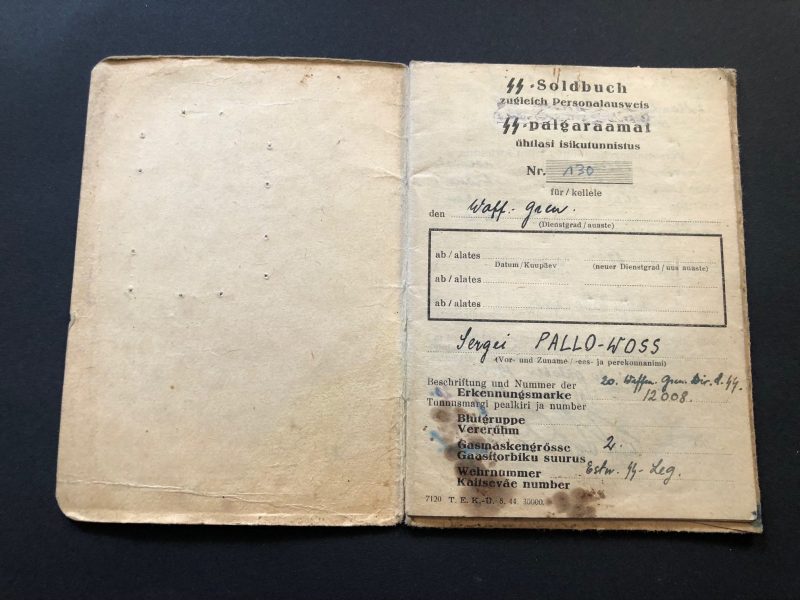 ᛋᛋ-Soldbuch
zugleich Personalausweis
ᛋᛋ-palgaraamat
ühtlasi isikutunnistus
Nr. 130
für/kellele
den Waff. Gren.
(Dienstgrad/auaste)
ab/alates
Datum/Kuupäev (neuer Dienstgrad/uus auaste)
ab/alates
ab/alates
Sergei PALLO-WOSS
(Vor- und Zuname/-ees- ja perekonnanimi)
Beschriftung und Nummer der 20. Waffen Gren. Div. d. ᛋᛋ.
Erkennungsmarke 12008.
Tunnusmargi pealkiri ja number
Blutgruppe
Vererühm
Gasmaskengrösse 2.
Gaasitorbiku suurus
Wehrnummer Estn. ᛋᛋ-Leg.
Kaitseväe number
7120 T. E. K.-Ü. 8. 44. 30000.